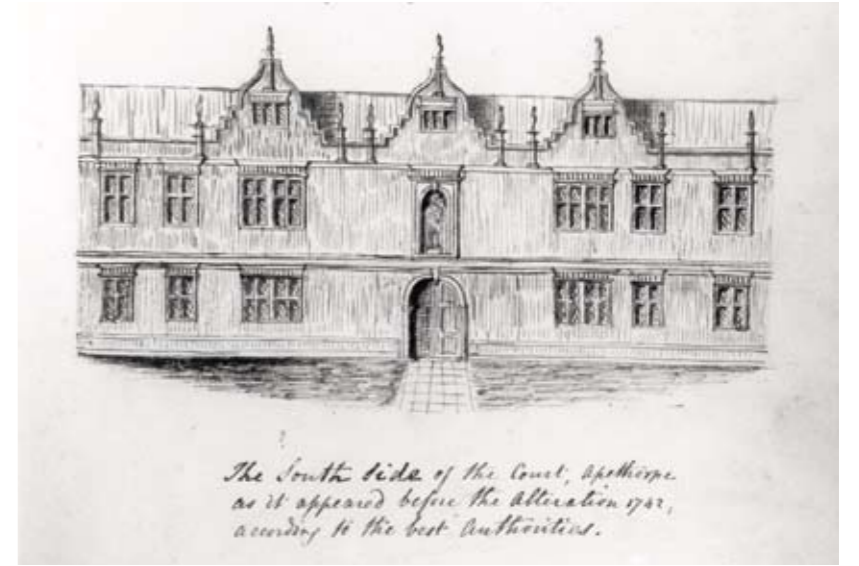 The South Side of the Court, Apethorpe
as it appeared before the Alteration 1742,
according to the best Authorities.